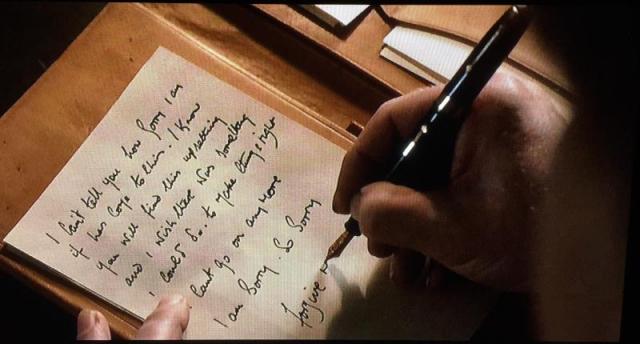 I can't tell you how sorry I am
it has come to this. I know
you will find this upsetting
and I wish there was something
I could do to make things right
I can't go on anymore
I am sorry. So sorry
forgive